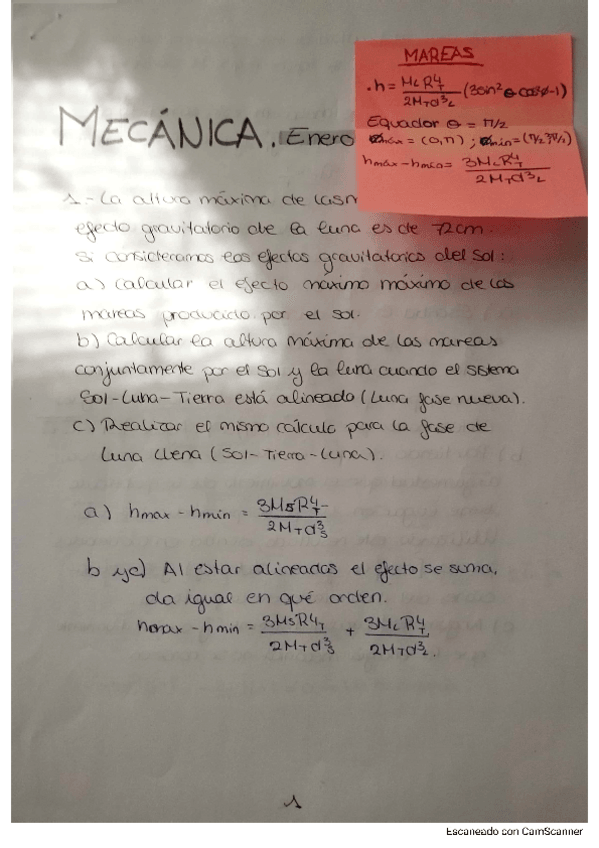 MAREAS
. h = M_L R_T^4 / 2M_T d_L^3 (3sin² θ cos²ϕ-1)
Equador θ = π/2
ϕmáx = (0,π) ; ϕmin = (π/2, 3π/2)
hmax - hmin = 3M_L R_T^4 / 2M_T d_L^3
MECÁNICA. Enero
1.- La altura máxima de las
efecto gravitatorio de la luna es de 72cm.
Si consideramos los efectos gravitatorios del Sol:
a) Calcular el efecto máximo máximo de las
mareas producido por el sol.
b) Calcular la altura máxima de las mareas
conjuntamente por el Sol y la luna cuando el sistema
Sol-Luna-Tierra está alineado (Luna fase nueva).
c) Realizar el mismo cálculo para la fase de
Luna Llena (Sol-Tierra-Luna).
a) hmax - hmin = 3M_S R_T^4 / 2M_T d_S^3
b y c) Al estar alineados el efecto se suma,
da igual en qué orden.
hmax - hmin = 3M_S R_T^4 / 2M_T d_S^3 + 3M_L R_T^4 / 2M_T d_L^3.
1
Escaneado con CamScanner